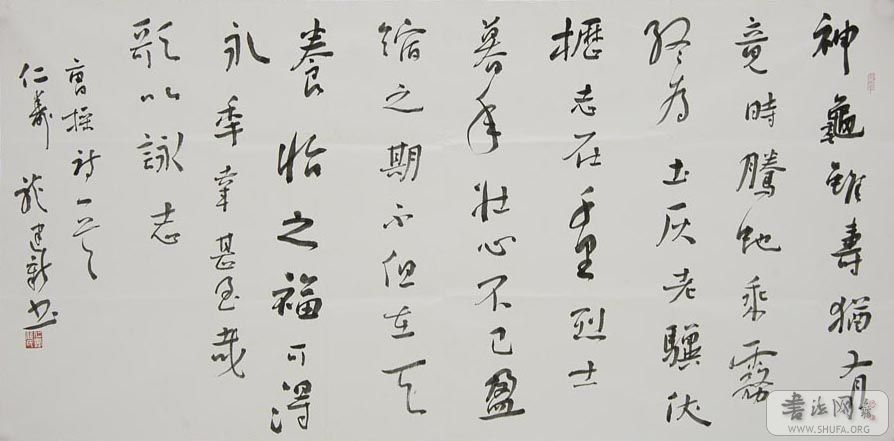 神龜雖壽猶有
竟時騰蛇乘霧
終為土灰老驥伏
櫪志在千里烈士
暮年壯心不已盈
縮之期不但在天
養怡之福可得
永年幸甚至哉
歌以詠志
曹操詩一首
仁壽龍建新書
書法网
WWW.SHUFA.ORG